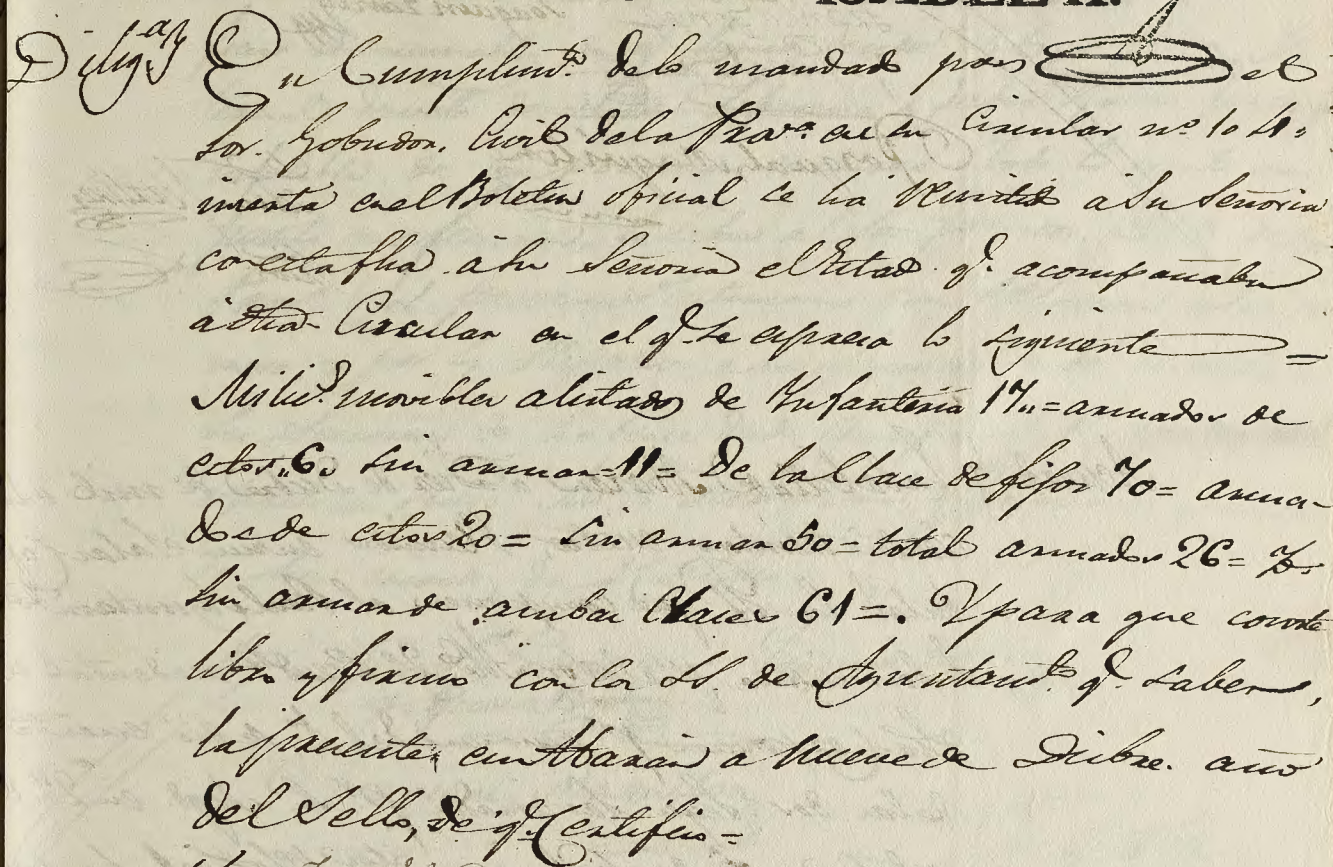 ISABEL II.
Dilig.ª En Cumplim.to delo mandado por el
Sor. Gobndor. Civil dela Prov.ª en su Circular nº 104,
inserta en el Boletin oficial se ha remitido a Su Señoria
con esta fha á su Señoria el Estado q.e acompañaba
á dha Circular en el q.e se espresa lo siguiente =
Milic.s movibles alistados de Infanteria 17,, = armados de
estos,, 6,, sin armar = 11 = De la Clase de fijos 70 = arma-
dos de estos 20 = sin armar 50 = total armados 26 = Y.
sin armar de ambas Clases 61 = . Y para que conste
libro y firmo con los SS. de Ayuntam.to q.e saben,
la presente, en Abarán a nueve de Dicbre. año
del Sello, de q.e Certifico =